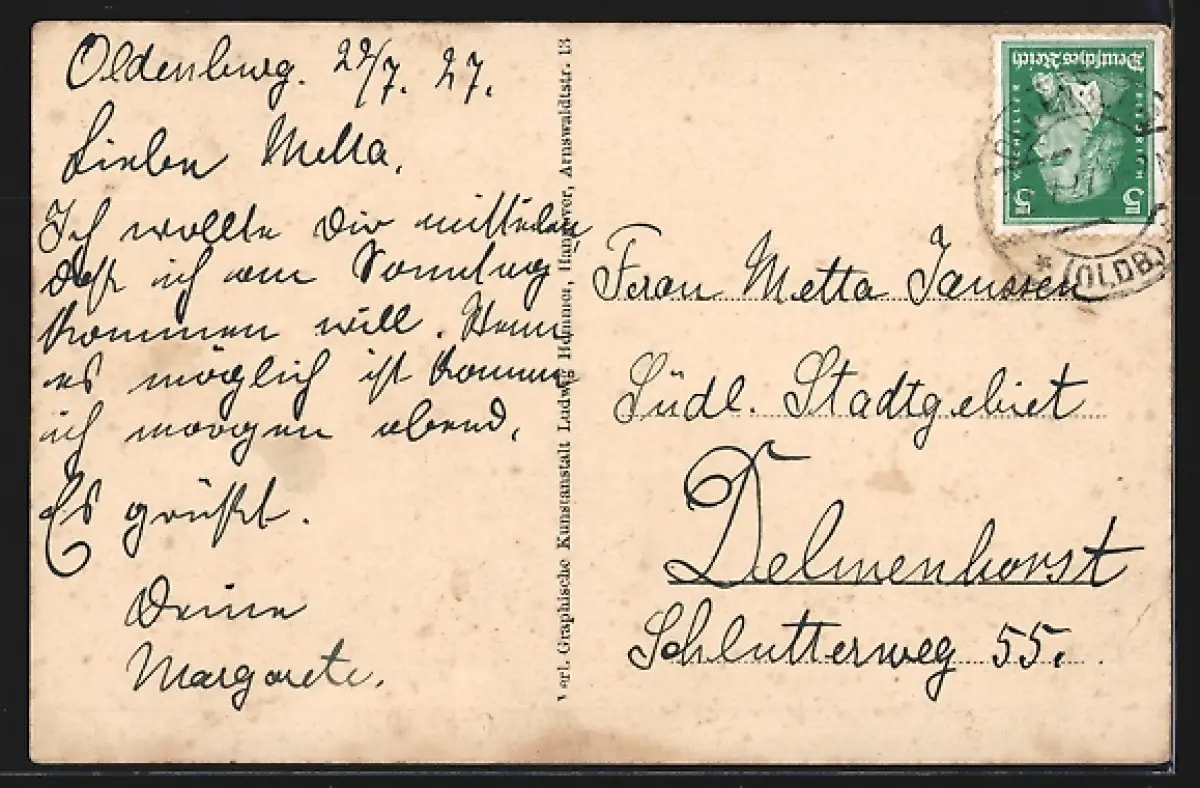 Oldenburg. 22/7. 27.
Lieben Metta.
Ich wollte Dir mitteilen
daß ich am Sonntag
kommen will. Wenn
es möglich ist komme
ich morgen abend.
Es grüßt.
Deine
Margarete.
Verl. Graphische Kunstanstalt Ludwig Hemmer, Hannover, Arnswaldtstr. 13
Deutsches Reich
FRIEDRICH
V. SCHILLER
5 5
* (OLDB.)
Frau Metta Janssen
Südl. Stadtgebiet
Delmenhorst
Schlutterweg 55.